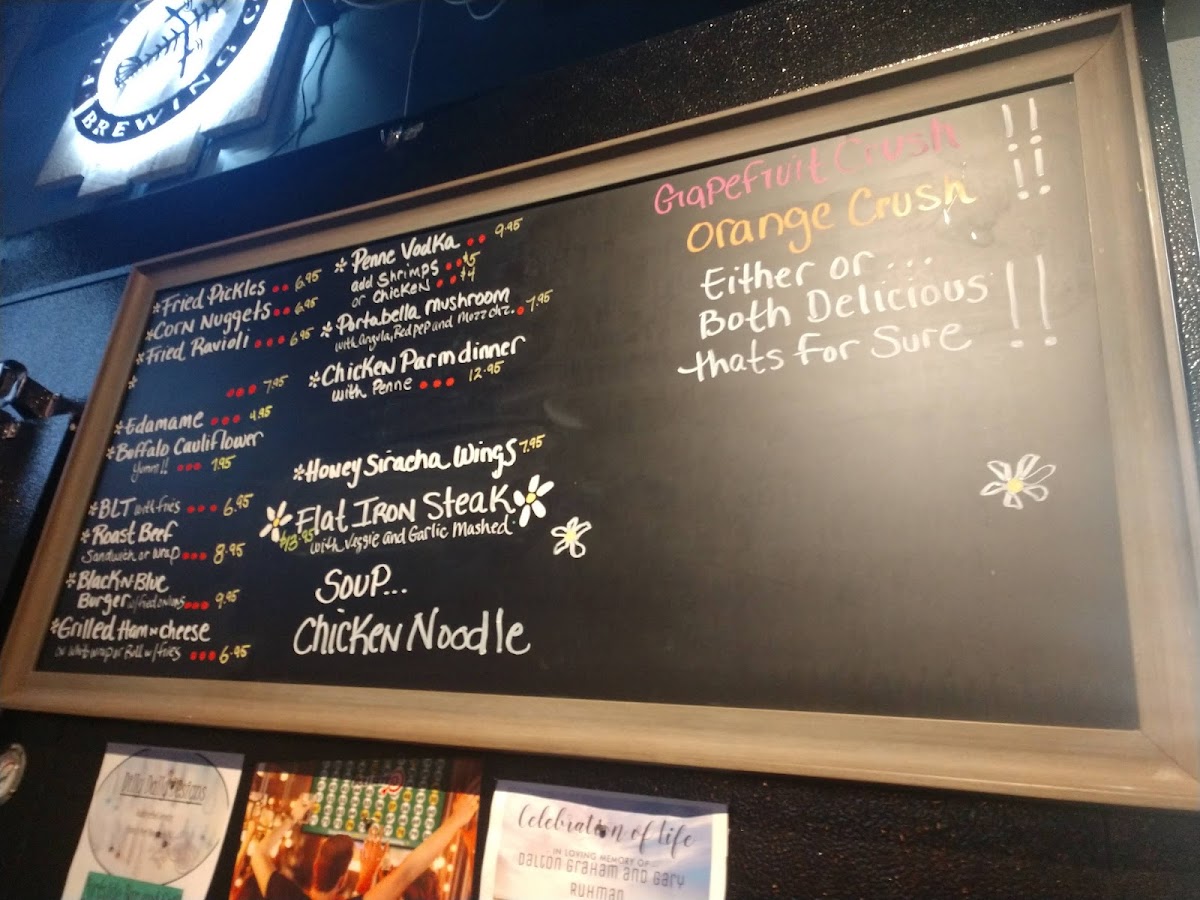 BREWING C
*Fried Pickles •• 6.95
*Corn Nuggets •• 6.95
*Fried Ravioli ••• 6.95
* ••• 7.95
*Edamame ••• 4.95
*Buffalo Cauliflower
Yumm!! ••• 7.95
*BLT with fries ••• 6.95
*Roast Beef
Sandwich or wrap ••• 8.95
*Black N Blue
Burger w/fried onions ••• 9.95
*Grilled Ham N cheese
on wrap or Roll w/fries ••• 6.95
*Penne Vodka •• 9.95
add Shrimps •• $5
or Chicken •• $4
*Portabella mushroom
with Arugula, Red pep and Mozz chz. • 7.95
*Chicken Parm dinner
with Penne ••• 12.95
*Honey Siracha Wings 7.95
Flat Iron Steak
$13.95 with veggie and Garlic Mashed
Soup...
Chicken Noodle
Grapefruit Crush !!
Orange Crush !!
Either or...
Both Delicious !!
thats for Sure
Celebration of life
IN LOVING MEMORY OF
Dalton Graham and Gary
Ruhman